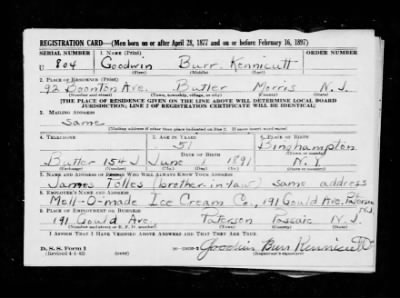 REGISTRATION CARD—(Men born on or after April 28, 1877 and on or before February 16, 1897)
SERIAL NUMBER 1. NAME (Print) ORDER NUMBER
U 804 Goodwin Burr Kennicutt
(First) (Middle) (Last)
2. PLACE OF RESIDENCE (Print)
92 Boonton Ave. Butler Morris N.J.
(Number and street) (Town, township, village, or city) (County) (State)
[THE PLACE OF RESIDENCE GIVEN ON THE LINE ABOVE WILL DETERMINE LOCAL BOARD
JURISDICTION; LINE 2 OF REGISTRATION CERTIFICATE WILL BE IDENTICAL]
3. MAILING ADDRESS
same
(Mailing address if other than place indicated on line 2. If same insert word same)
4. TELEPHONE 5. AGE IN YEARS 6. PLACE OF BIRTH
51 Binghampton
DATE OF BIRTH (Town or county)
Butler 154J June 1 1891 N.Y.
(Exchange) (Number) (Mo.) (Day) (Yr.) (State or country)
7. NAME AND ADDRESS OF PERSON WHO WILL ALWAYS KNOW YOUR ADDRESS
James Tolles (brother in law) same address
8. EMPLOYER'S NAME AND ADDRESS
Mell-O-made Ice Cream Co., 191 Gould Ave. Paterson N.J.
9. PLACE OF EMPLOYMENT OR BUSINESS
191 Gould Ave. Paterson Passaic N.J.
(Number and street or R. F. D. number) (Town) (County) (State)
I AFFIRM THAT I HAVE VERIFIED ABOVE ANSWERS AND THAT THEY ARE TRUE.
D. S. S. Form 1
(Revised 4-1-42) (over) Goodwin Burr Kennicutt